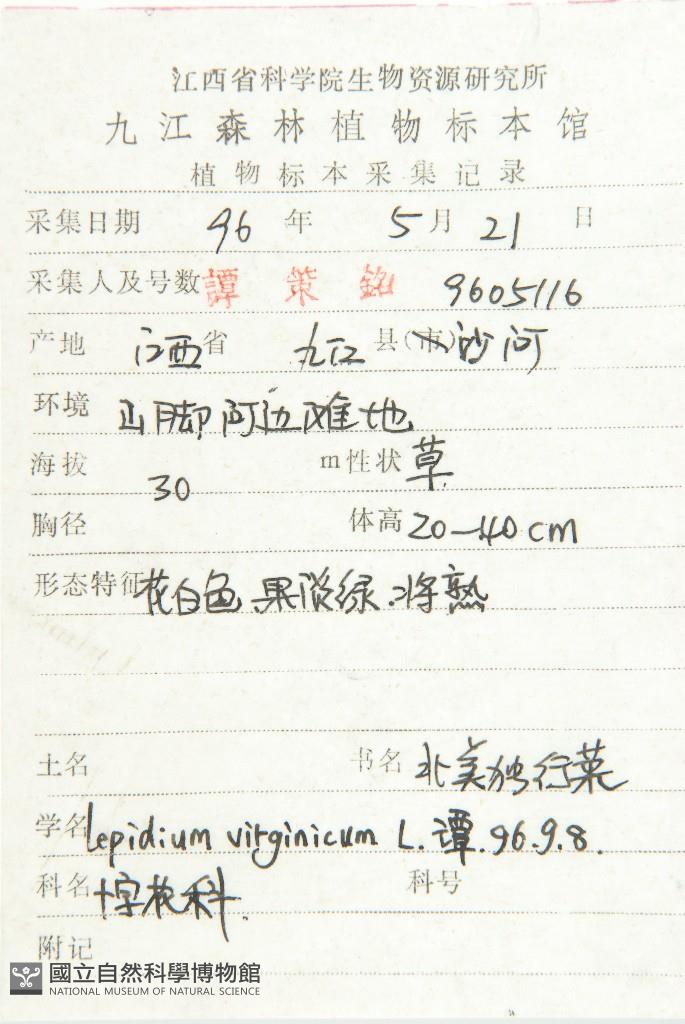 江西省科学院生物资源研究所
九江森林植物标本馆
植物标本采集记录
采集日期 96 年 5 月 21 日
采集人及号数 譚策銘 9605116
产地 江西省 九江县(市)沙河
环境 山脚河边滩地
海拔 30 m 性状 草
胸径 体高 20-40 cm
形态特征 花白色.果淡绿.将熟
土名 书名 北美独行菜
学名 Lepidium virginicum L. 谭.96.9.8.
科名 十字花科. 科号
附记
國立自然科學博物館
NATIONAL MUSEUM OF NATURAL SCIENCE